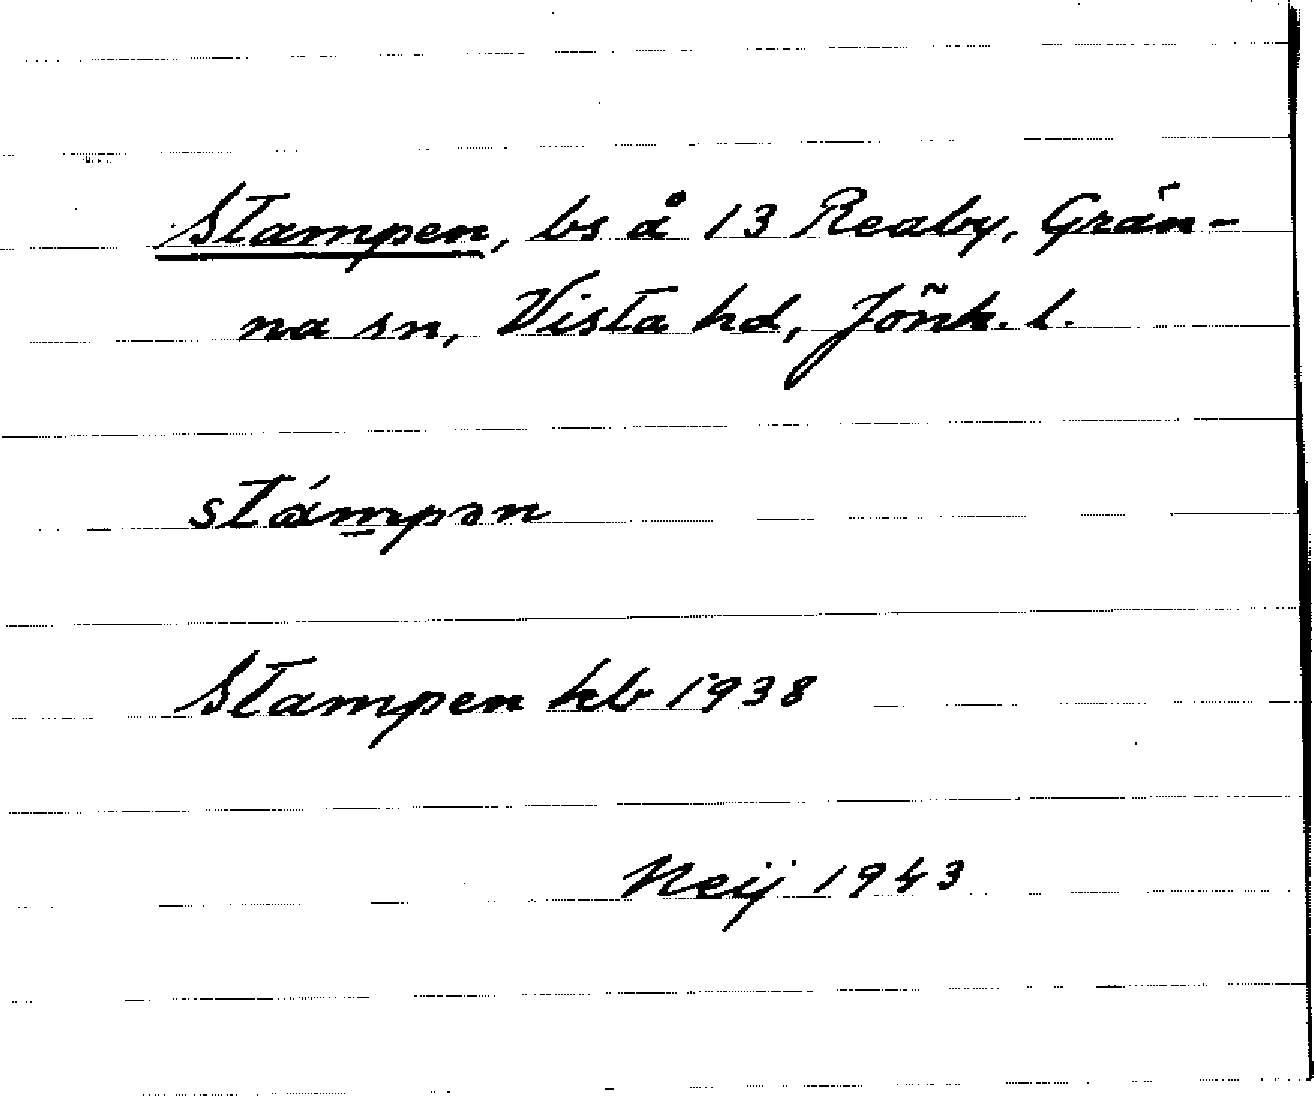 Stampen, bs å 13 Reaby, Grän-
na sn, Vista hd, Jönk. l.
stámpən
Stampen kb 1938
Neij 1943